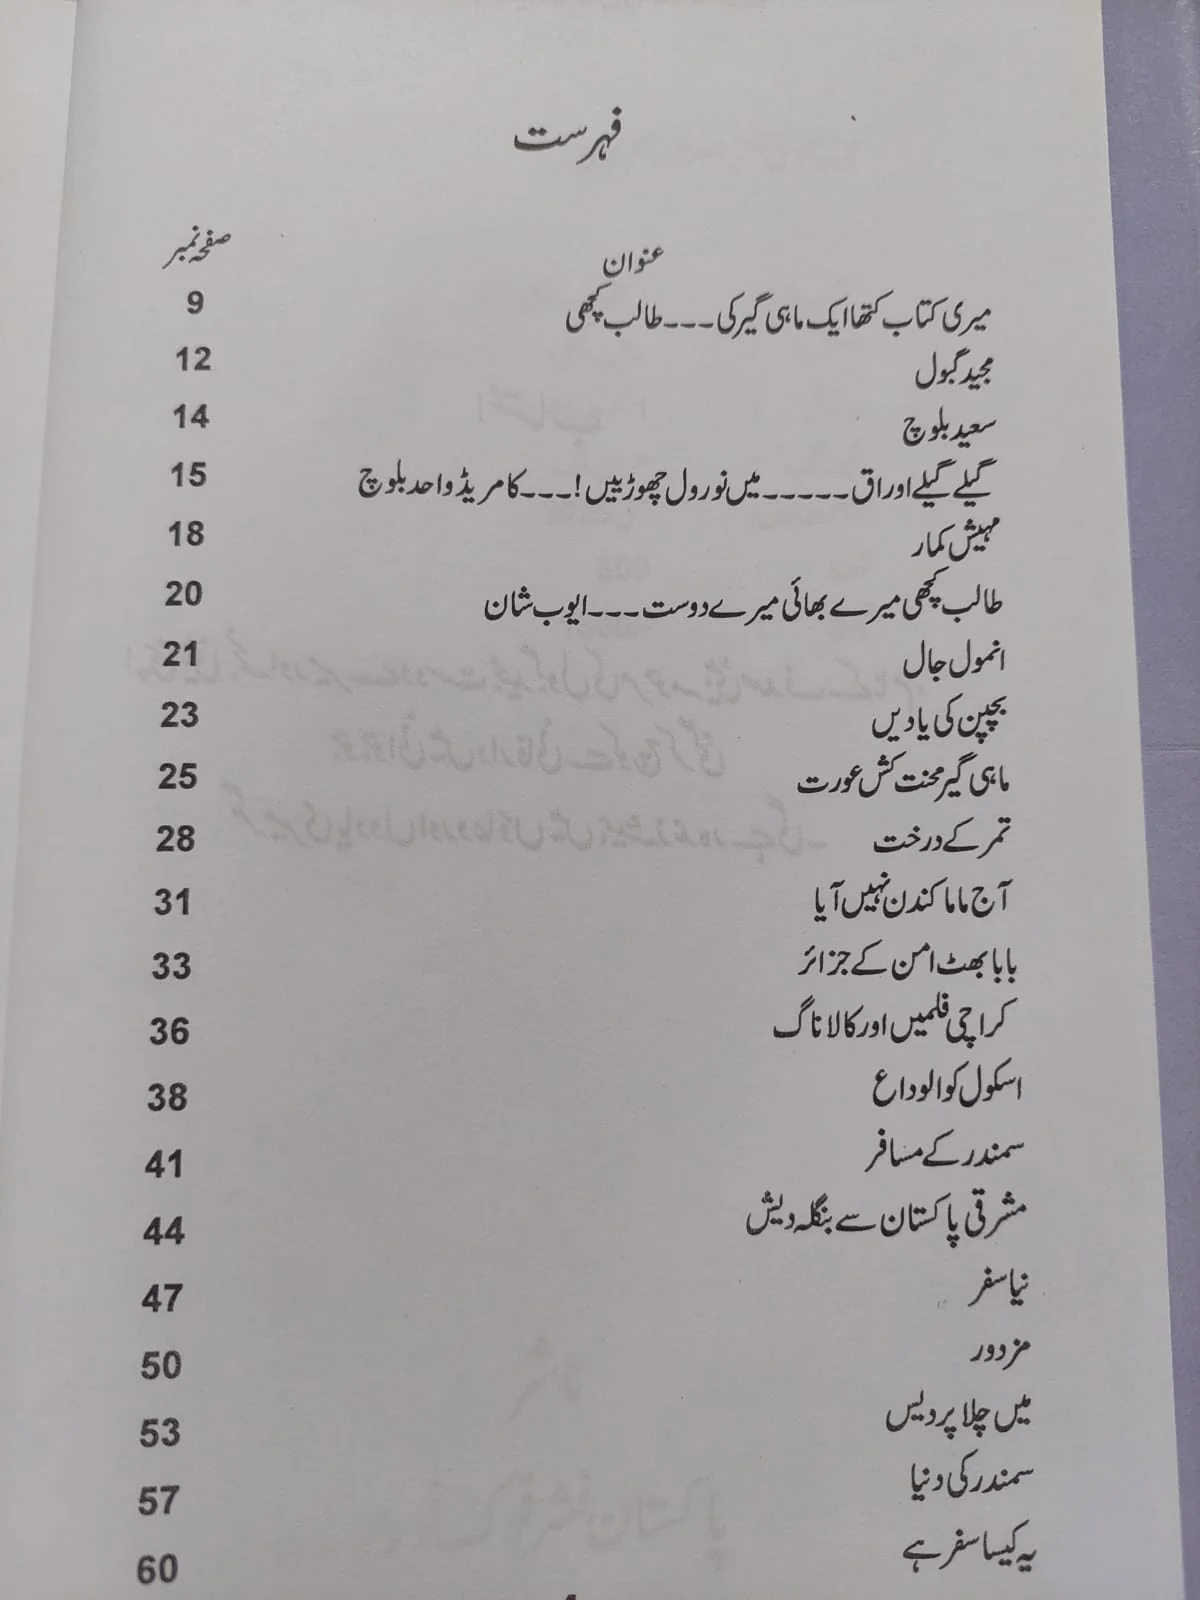 فہرست
عنوان صفحہ نمبر
میری کتاب کتھا ایک ماہی گیر کی ۔۔۔ طالب کچھی 9
مجید گبول 12
سعید بلوچ 14
گیلے گیلے اوراق ۔۔۔۔۔ میں نورول چھوڑییں! ۔۔۔ کامریڈ واحد بلوچ 15
مہیش کمار 18
طالب کچھی میرے بھائی میرے دوست ۔۔۔ ایوب شان 20
انمول جال 21
بچپن کی یادیں 23
ماہی گیر محنت کش عورت 25
تمر کے درخت 28
آج ماما کندن نہیں آیا 31
بابا بھٹ امن کے جزائر 33
کراچی فلمیں اور کالا ناگ 36
اسکول کو الوداع 38
سمندر کے مسافر 41
مشرقی پاکستان سے بنگلہ دیش 44
نیا سفر 47
مزدور 50
میں چلا پردیس 53
سمندر کی دنیا 57
یہ کیسا سفر ہے 60